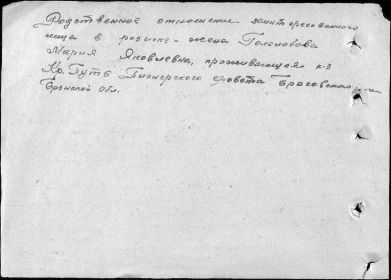 Родственное отношение заинтересованного
лица в розыске - жена Гололо́бова
Мария Яковлевна, проживающая к-з
Кр. Путь Пионерского с/совета Брасовского р-на
Брянской обл.